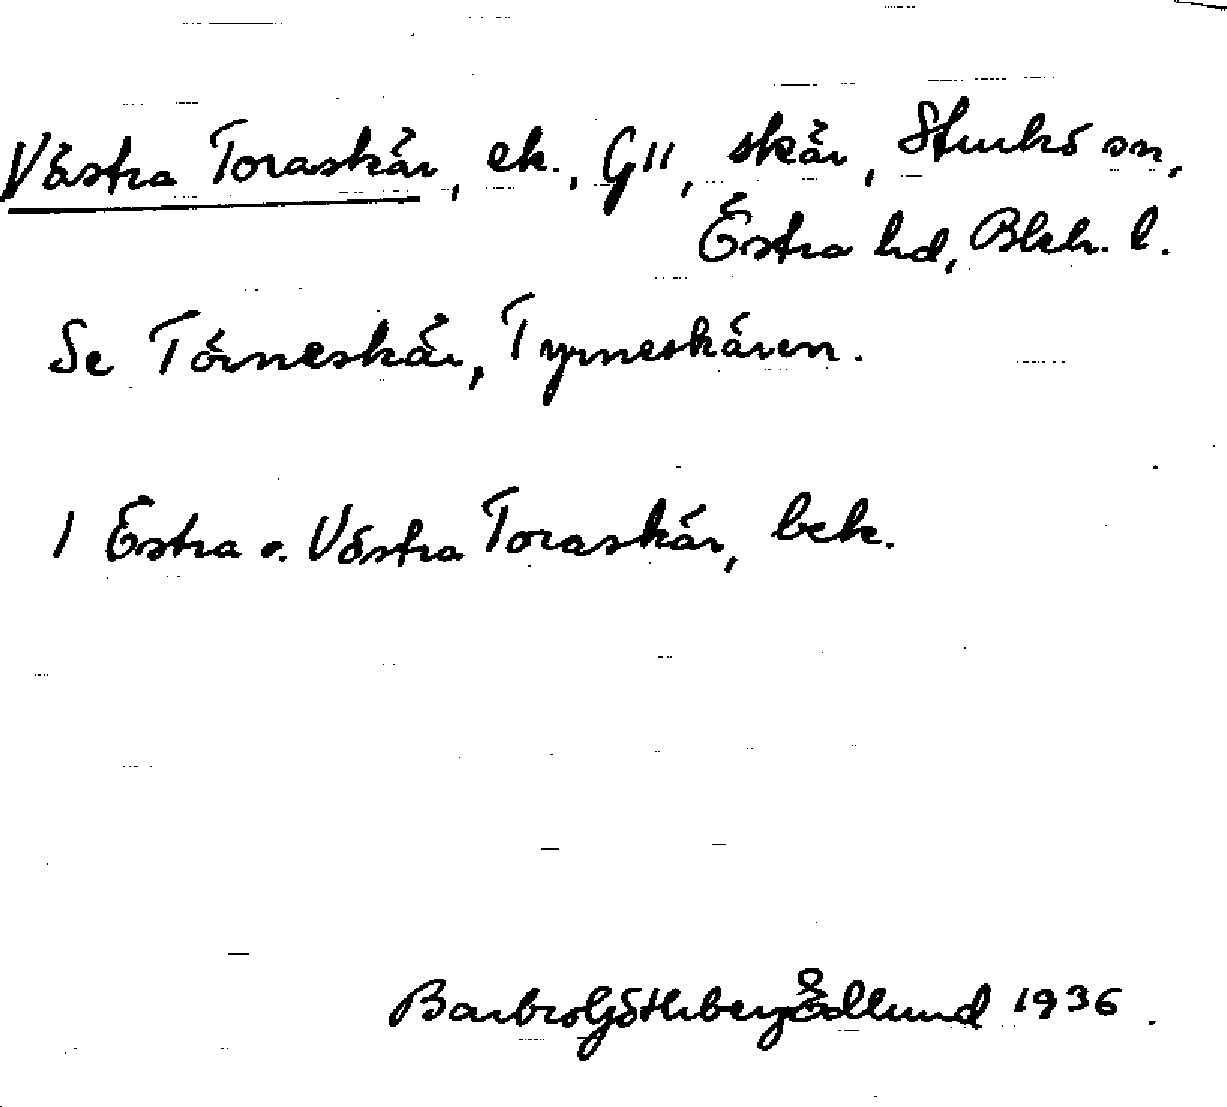 Västra Toraskär, ek., G11, skär, Sturkö sn,
Östra hd, Blek. l.
Se Törneskär, Tyrneskären.
1 Östra o. Västra Toraskär, bek.
Barbro Göthberg Edlund 1936.